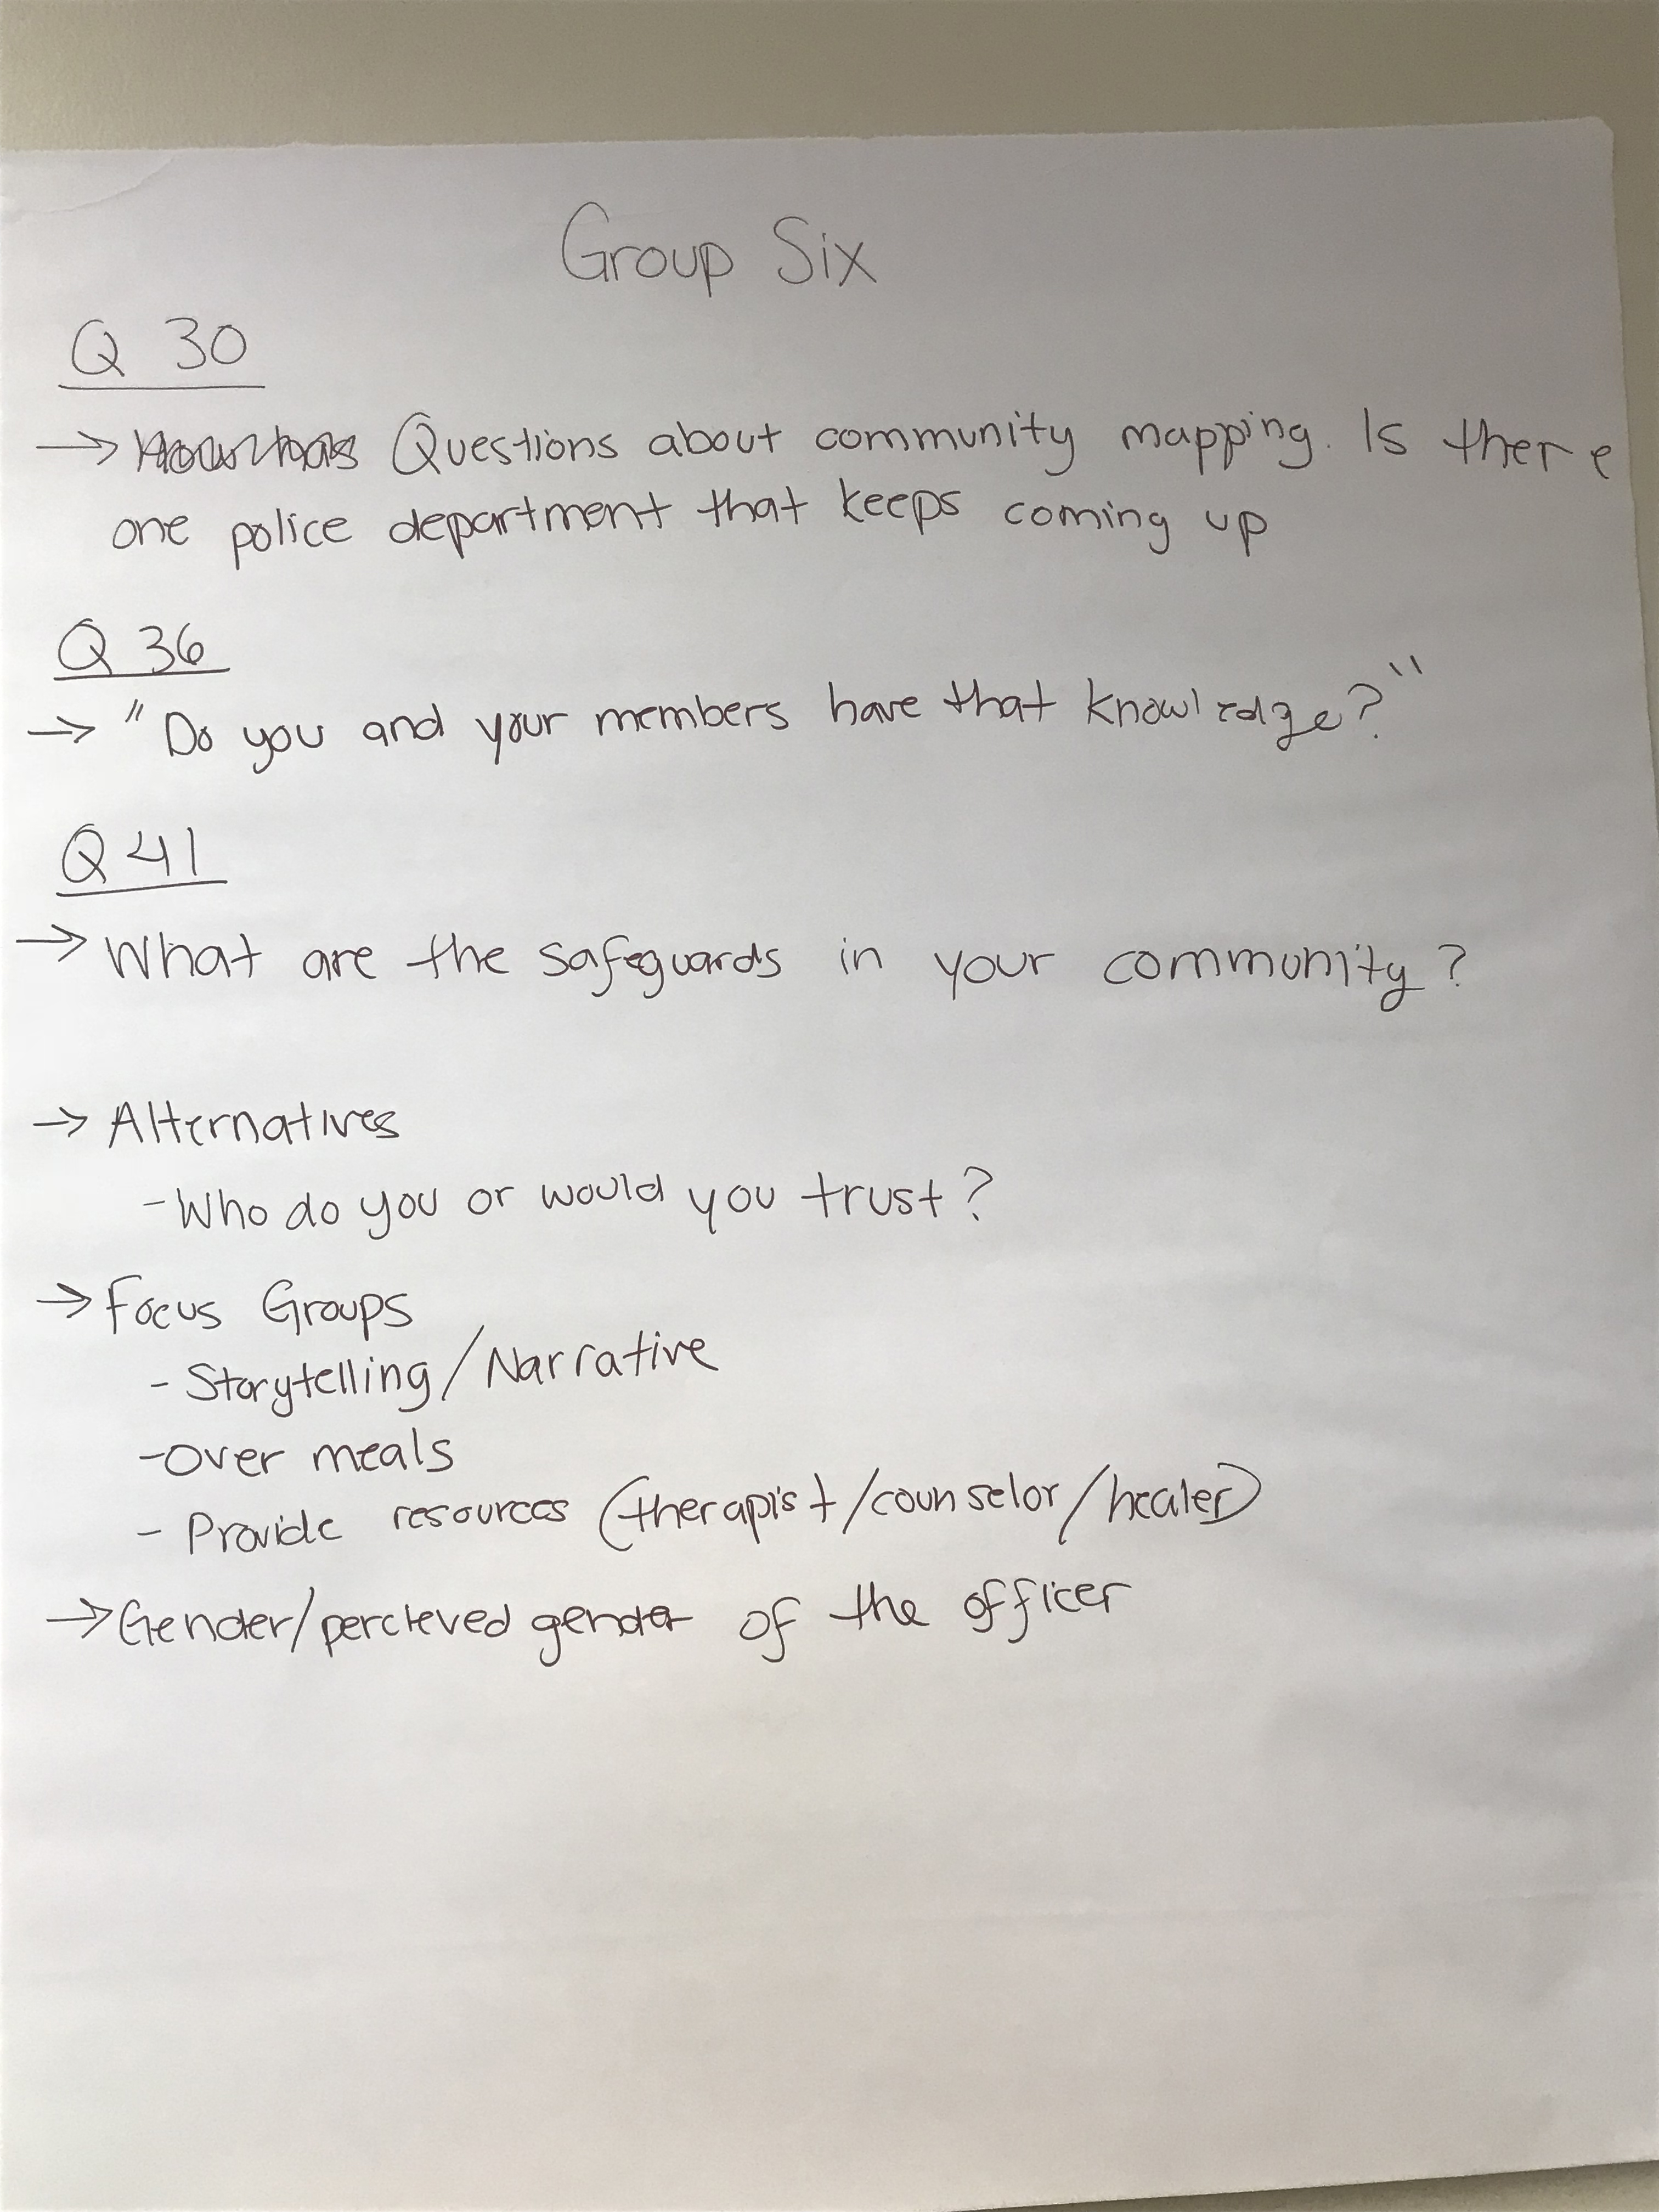 Group Six
Q 30
→ Questions about community mapping. Is there
one police department that keeps coming up
Q 36
→ "Do you and your members have that knowledge?"
Q 41
→ What are the safeguards in your community?
→ Alternatives
- Who do you or would you trust?
→ Focus Groups
- Storytelling/Narrative
- Over meals
- Provide resources (therapist/counselor/healer)
→ Gender/percieved gender of the officer